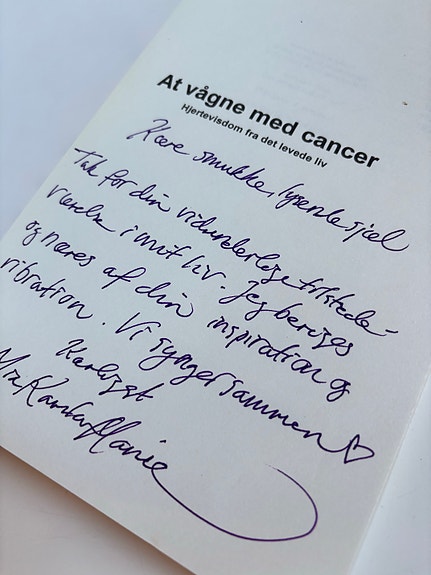 At vågne med cancer
Hjertevisdom fra det levede liv
Kære smukke, lysende sjæl
Tak for din vidunderlige tilstede-
værelse i mit liv. Jeg beriges
og næres af din inspiration og
vibration. Vi synger sammen ♡
Kærligst
Mia